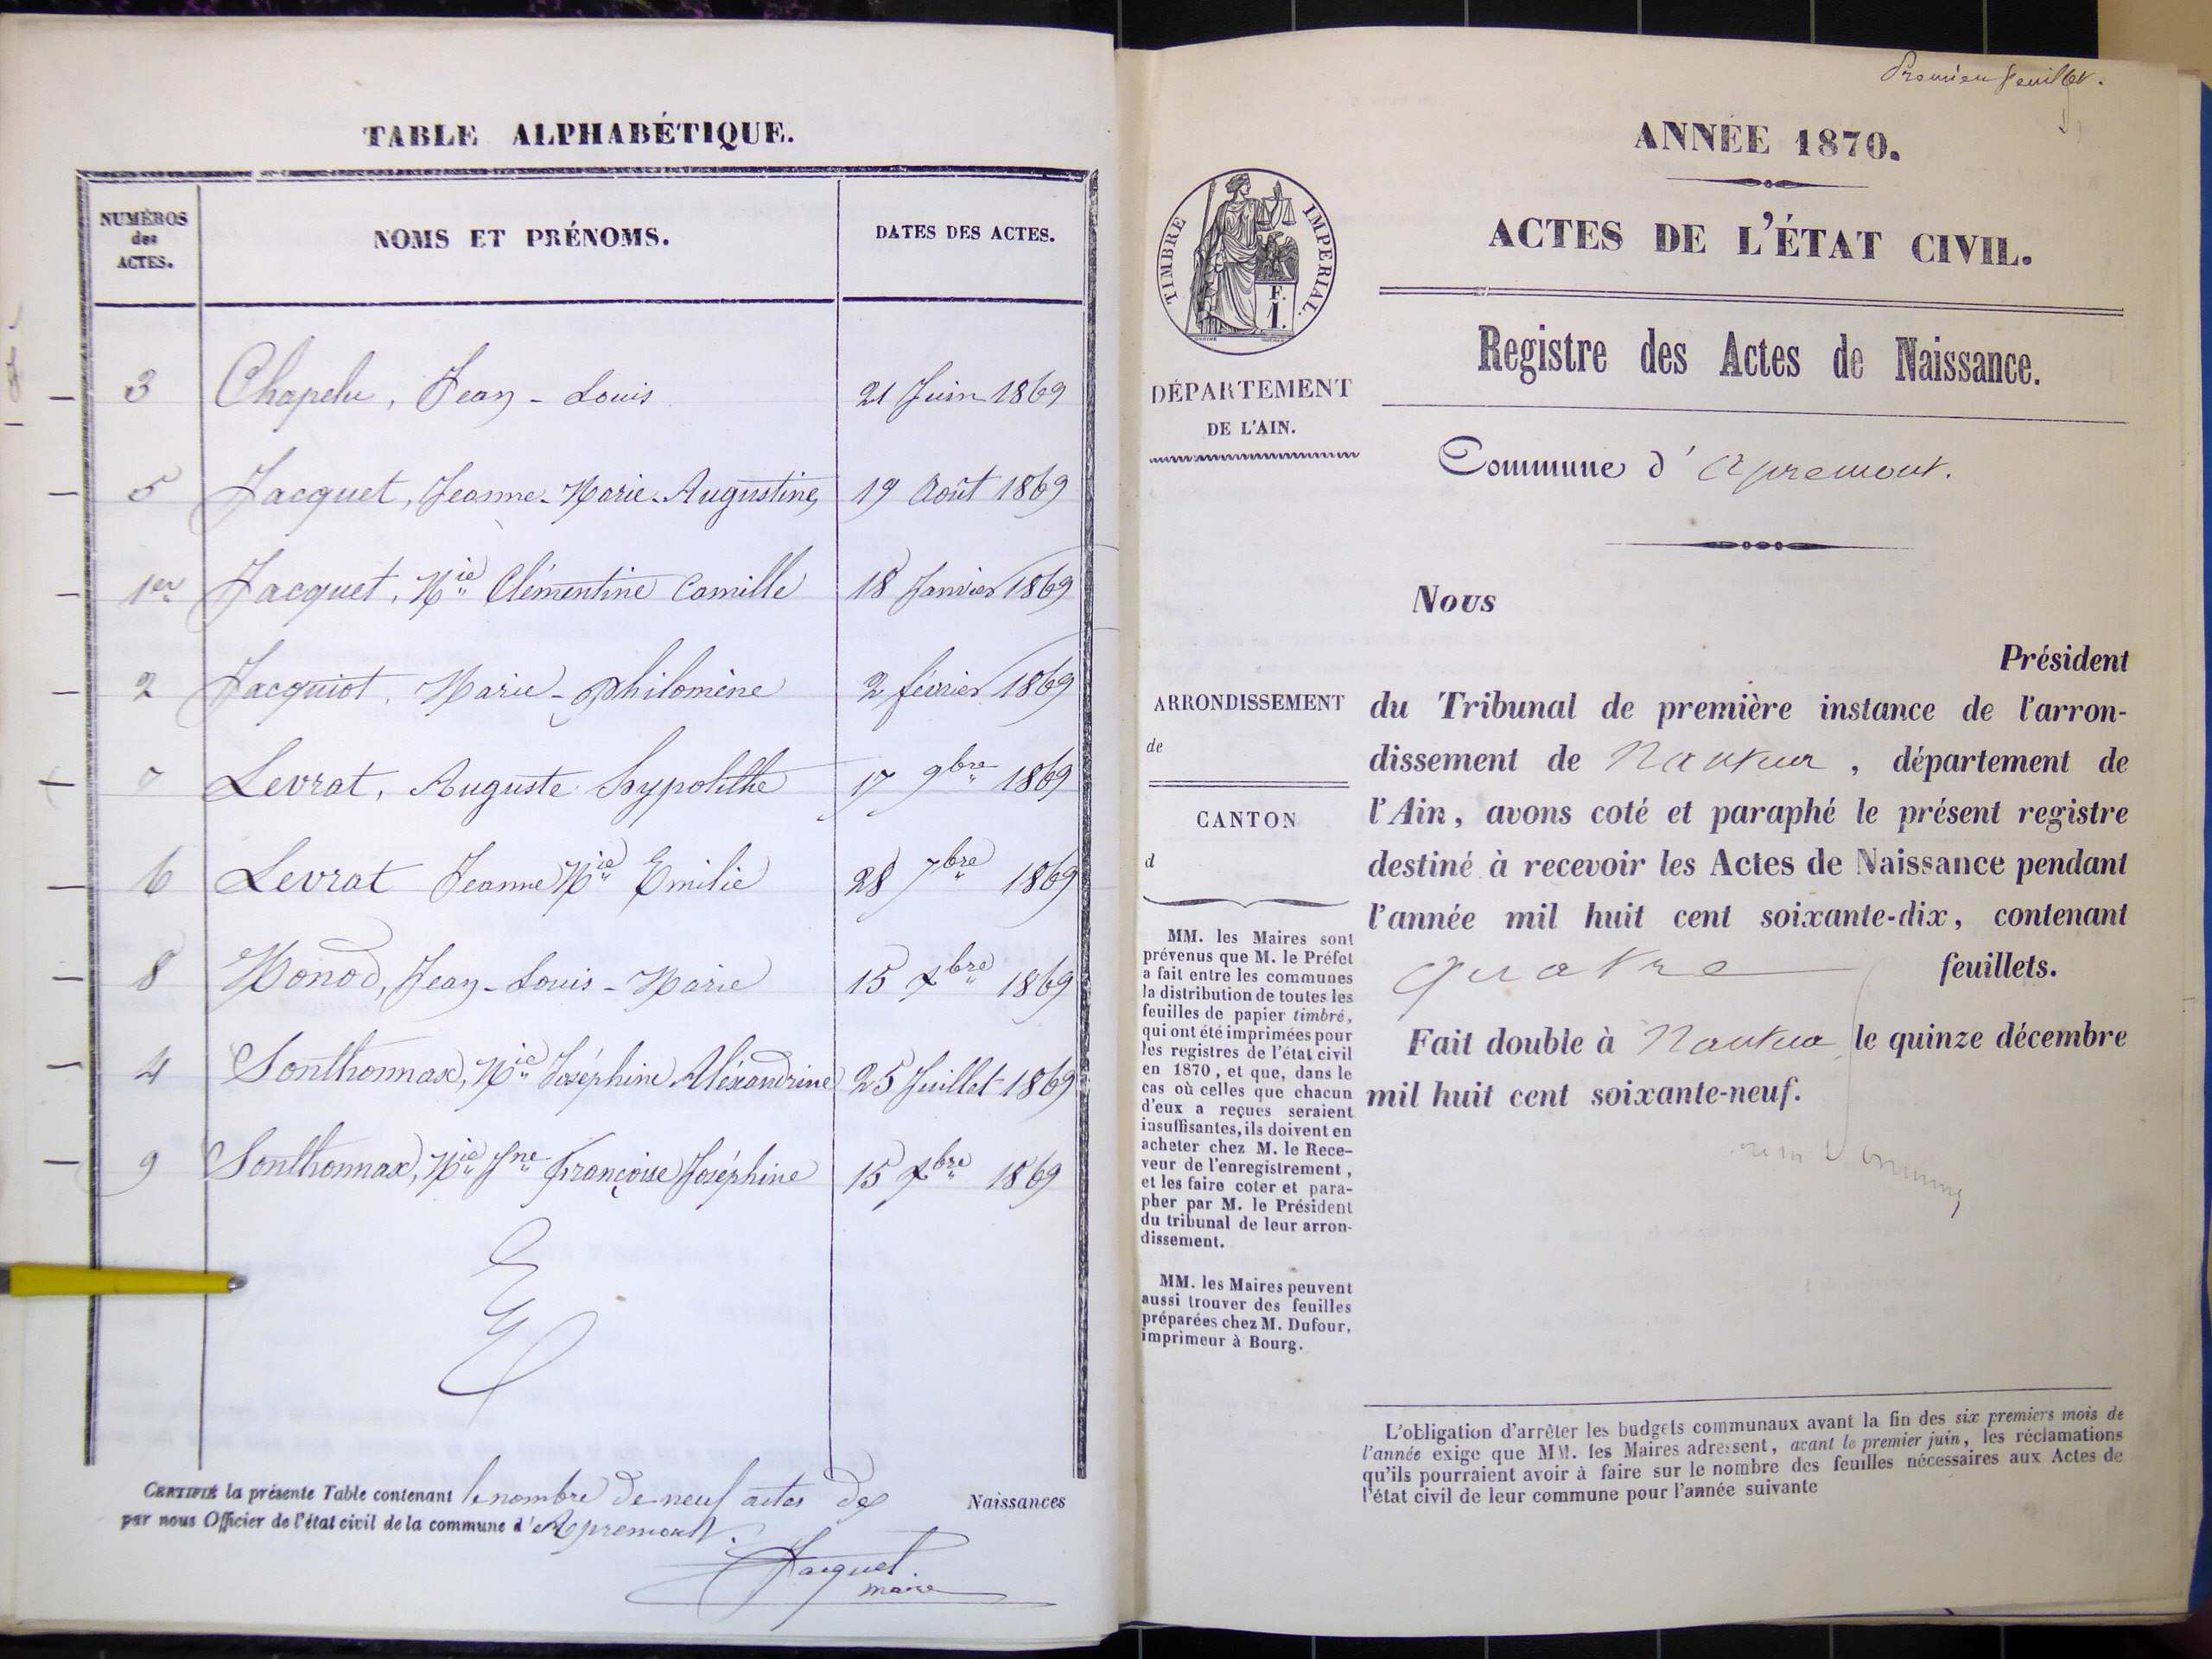 TABLE ALPHABÉTIQUE.
NUMÉROS des ACTES.
NOMS ET PRÉNOMS.
DATES DES ACTES.
3 Chapelu, Jean - Louis 21 Juin 1869
5 Jacquet, Jeanne-Marie-Augustine 19 Août 1869
1er Jacquet, Mie Clémentine Camille 18 Janvier 1869
2 Jacquiot, Marie-philomène 2 février 1869
7 Levrat, Auguste hypolithe 17 9bre 1869
6 Levrat Jeanne Mie Emilie 28 7bre 1869
8 Monod, Jean-Louis-Marie 15 Xbre 1869
4 Sonthonnax, Mie Joséphine Aléxandrine 25 Juillet 1869
9 Sonthonnax, Mie Jne Françoise Joséphine 15 Xbre 1869
CERTIFIÉ la présente Table contenant le nombre de neuf actes de Naissances
par nous Officier de l'état civil de la commune d'Apremont.
Jacquet
maire
Premier feuillet.
ANNÉE 1870.
ACTES DE L'ÉTAT CIVIL.
TIMBRE IMPERIAL.
F.
1.
Registre des Actes de Naissance.
DÉPARTEMENT
DE L'AIN.
Commune d'Apremont.
Nous
Président
ARRONDISSEMENT
de
CANTON
d
du Tribunal de première instance de l'arron-
dissement de Nantua, département de
l'Ain, avons coté et paraphé le présent registre
destiné à recevoir les Actes de Naissance pendant
l'année mil huit cent soixante-dix, contenant
quatre feuillets.
Fait double à Nantua le quinze décembre
mil huit cent soixante-neuf.
MM. les Maires sont
prévenus que M. le Préfet
a fait entre les communes
la distribution de toutes les
feuilles de papier timbré,
qui ont été imprimées pour
les registres de l'état civil
en 1870, et que, dans le
cas où celles que chacun
d'eux a reçues seraient
insuffisantes, ils doivent en
acheter chez M. le Rece-
veur de l'enregistrement,
et les faire coter et para-
pher par M. le Président
du tribunal de leur arron-
dissement.
MM. les Maires peuvent
aussi trouver des feuilles
préparées chez M. Dufour,
imprimeur à Bourg.
L'obligation d'arrêter les budgets communaux avant la fin des six premiers mois de
l'année exige que MM. les Maires adressent, avant le premier juin, les réclamations
qu'ils pourraient avoir à faire sur le nombre des feuilles nécessaires aux Actes de
l'état civil de leur commune pour l'année suivante